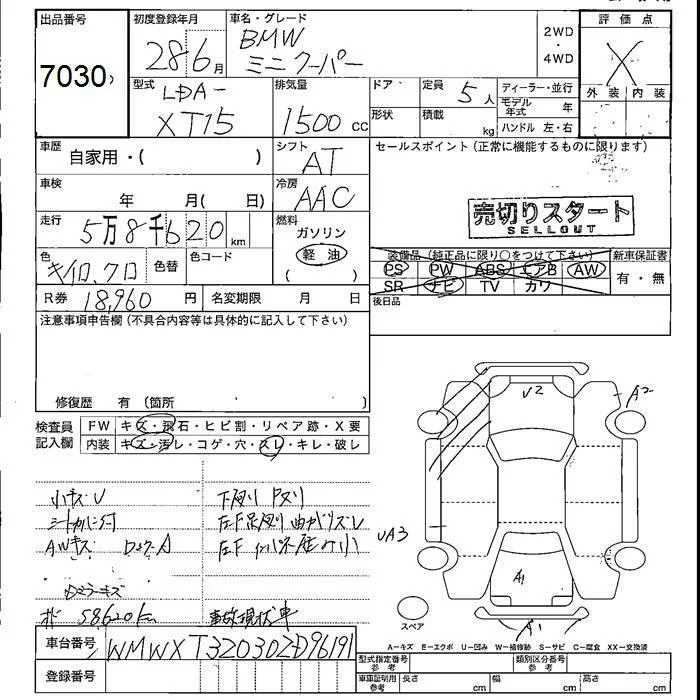 出品番号
7030
初度登録年月
28 6 月
車名・グレード
BMW
ミニクーパー
2WD
・
4WD
評価点
X
外装 内装
型式
LDA-
XT15
排気量
1500 cc
ドア
形状
定員
5 人
積載
kg
ディーラー・並行
モデル年式 年
ハンドル 左・右
車歴
自家用・( )
シフト
AT
セールスポイント(正常に機能するものに限ります)
車検
年 月( 日)
冷房
AAC
売切りスタート
SELLOUT
走行
5万8千620 km
燃料
ガソリン
軽油
( )
装備品(純正品に限り○をつけて下さい)
PS PW ABS エアB AW
SR ナビ TV カワ
新車保証書
有・無
色
キイロ、クロ
色替
色コード
R券 18,960 円
名変期限 月 日
後日品
注意事項申告欄(不具合内容等は具体的に記入して下さい)
修復歴 有(箇所 )
検査員
記入欄
FW キズ・飛石・ヒビ割・リペア跡・X要
内装 キズ・汚レ・コゲ・穴・スレ・キレ・破レ
小キズU
AWキズ
Dミラーキズ
58620km
事故現状車
U2
A2
UA3
A1
A1
スペア
A−キズ E−エクボ U−凹み W−補修跡 S−サビ C−腐食 XX−交換済
車台番号
WMWXT320302D96191
登録番号
型式指定番号
参考
類別区分番号
参考
車庫証明用
参考
長さ cm
幅 cm
高さ cm